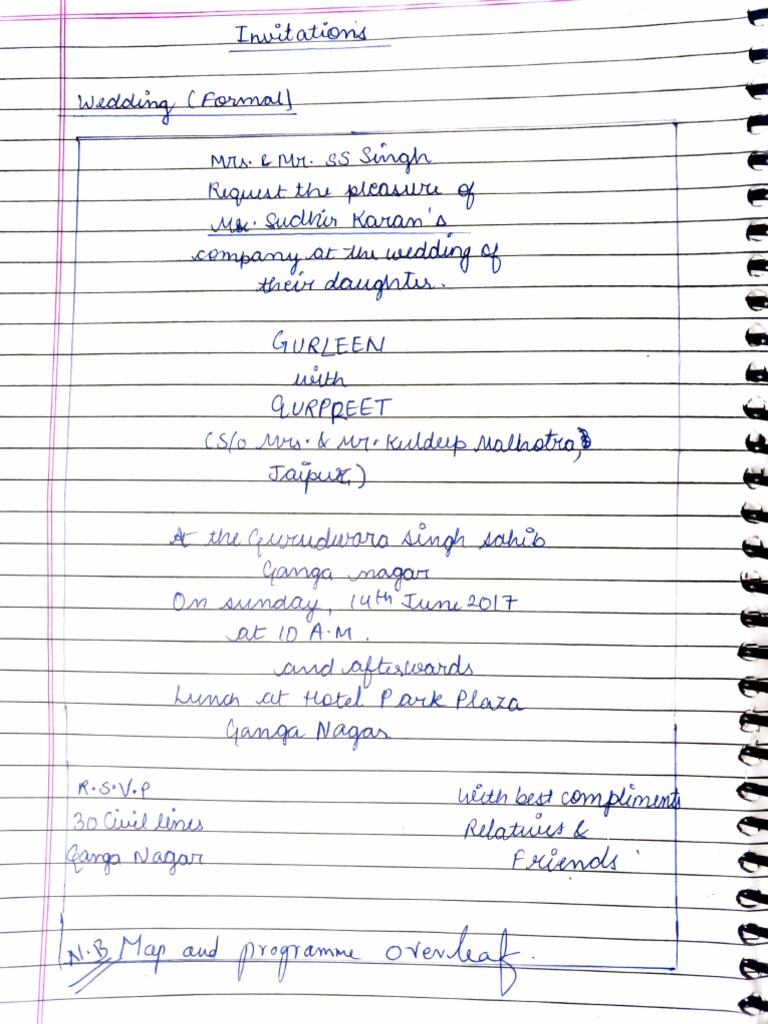 Invitations
Wedding (Formal)
Mrs. & Mr. SS Singh
Request the pleasure of
Mr. Sudhir Karan's
company at the wedding of
their daughter.
GURLEEN
with
GURPREET
(S/o Mrs. & Mr. Kuldeep Malhotra,
Jaipur,)
At the Gurudwara Singh sahib
Ganga nagar
On sunday, 14th June 2017
at 10 A.M.
and afterwards
Lunch at Hotel Park Plaza
Ganga Nagar
R.S.V.P
with best compliments
30 Civil lines
Relatives &
Ganga Nagar
Friends
N.B Map and programme overleaf.